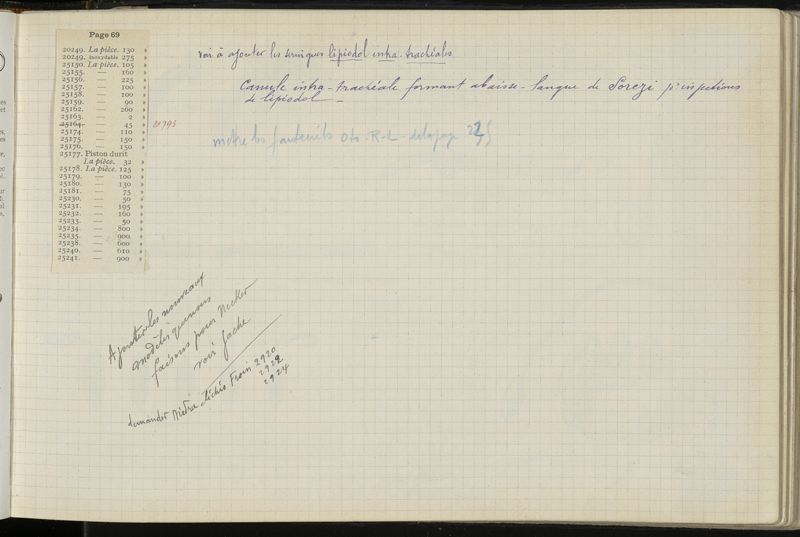 Page 69
20249. La pièce. 130 »
20249. inoxydable 275 »
25150. La pièce. 105 »
25155. — 160 »
25156. — 225 »
25157. — 100 »
25158. — 100 »
25159. — 90 »
25162. — 260 »
25163. — 2 »
25164. — 45 »
20795
25174. — 110 »
25175. — 150 »
25176. — 150 »
25177. Piston durit
La pièce. 32 »
25178. La pièce. 125 »
25179. — 100 »
25180. — 130 »
25181. — 75 »
25230. — 50 »
25231. — 195 »
25232. — 160 »
25233. — 50 »
25234. — 800 »
25235. — 900 »
25238. — 600 »
25240. — 610 »
25241. — 900 »
voir à ajouter les seringues lipiodol intra-trachéales
Canule intra-trachéale formant abaisse-langue de Sorezi pr injections
de lipiodol —
mettre les fauteuils Oto-R-L- de la page 225
Ajouter les nouveaux
modèles que nous
faisons pour Necker
voir Gache
demander Métra Froin 2920
2922
2924